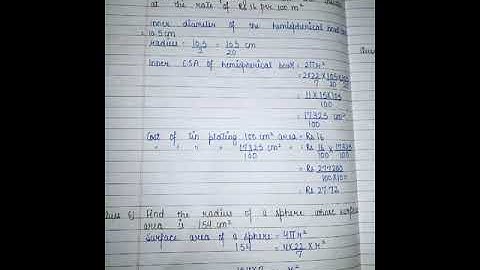 at the rate of Rs 16 per 100 m²
Inner diameter of the hemispherical bowl
= 10.5 cm
radius = 10.5/2 = 105/20 cm
Inner CSA of hemispherical bowl = 2πr²
= 2×22/7 × 105/20 × 105/20
= 11×15×105/100
= 17325/100
Cost of tin plating 100 cm² area = Rs 16
" " " " 17325/100 cm² " = Rs 16/100 × 17325/100
= Rs 277200/100×100
= Rs 27.72
6) Find the radius of a sphere whose surface
area is 154 cm²
Surface area of a sphere = 4πr²
154 = 4×22/7 × r²
r²